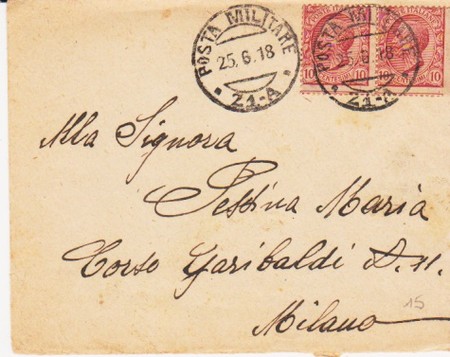 POSTA MILITARE
25.6.18
21-A
POSTA MILITARE
25.6.18
21-A
10 CENTESIMI 10
10 10
Alla Signora
Pessina Maria
Corso Garibaldi D. 11.
15
Milano